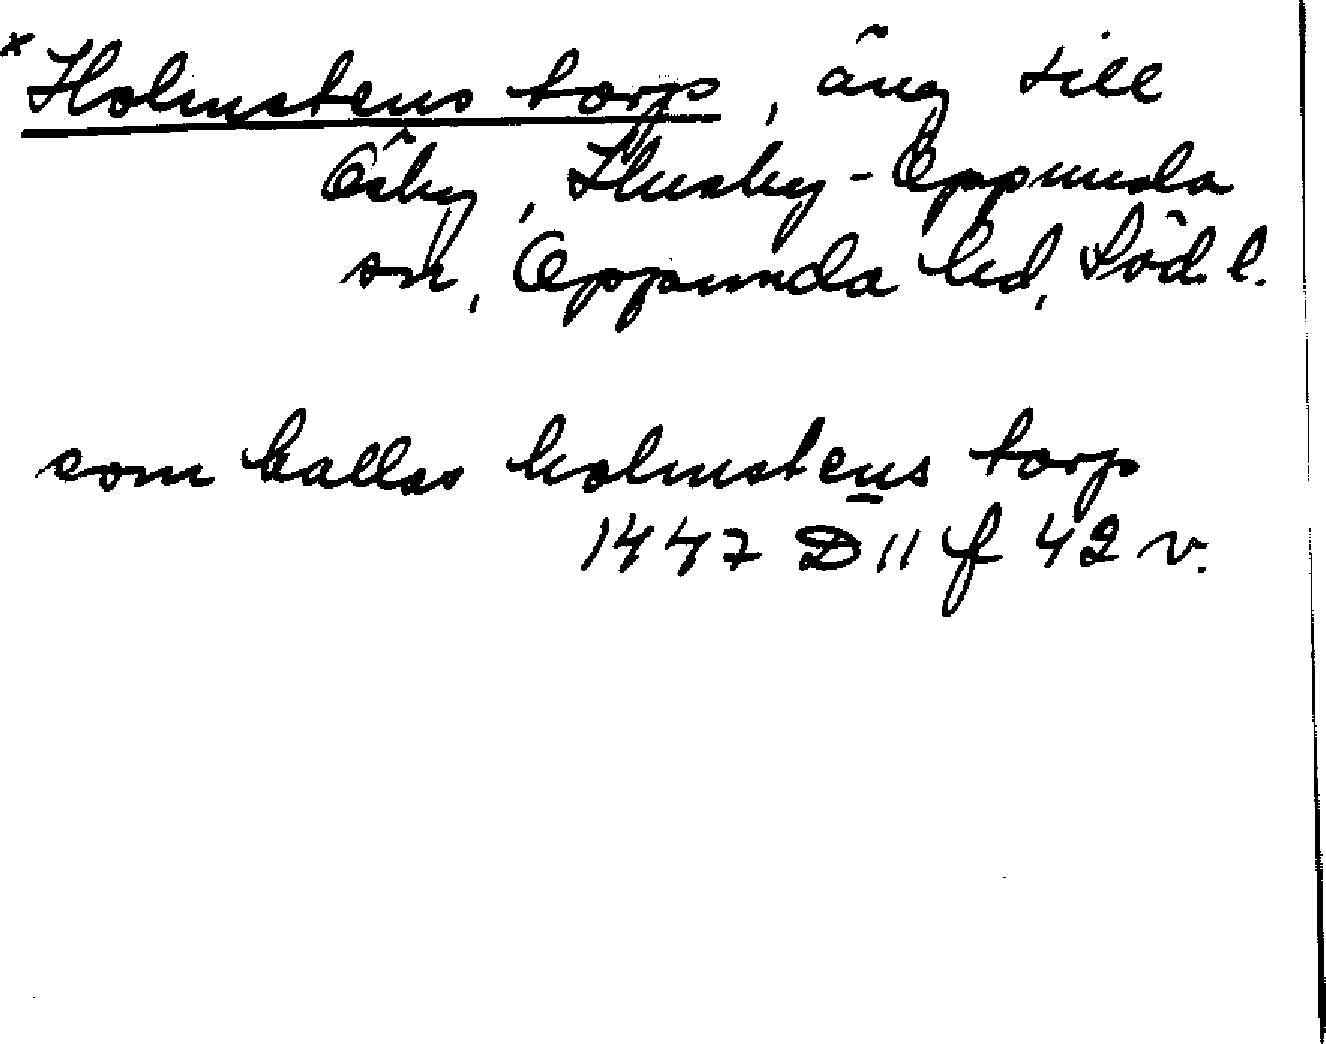 * Holmstens torp, äng till
Ösby, Husby-Oppunda
sn, Oppunda hd, Söd. l.
som kallas holmstens torp
1447 D 11 f 42 v.